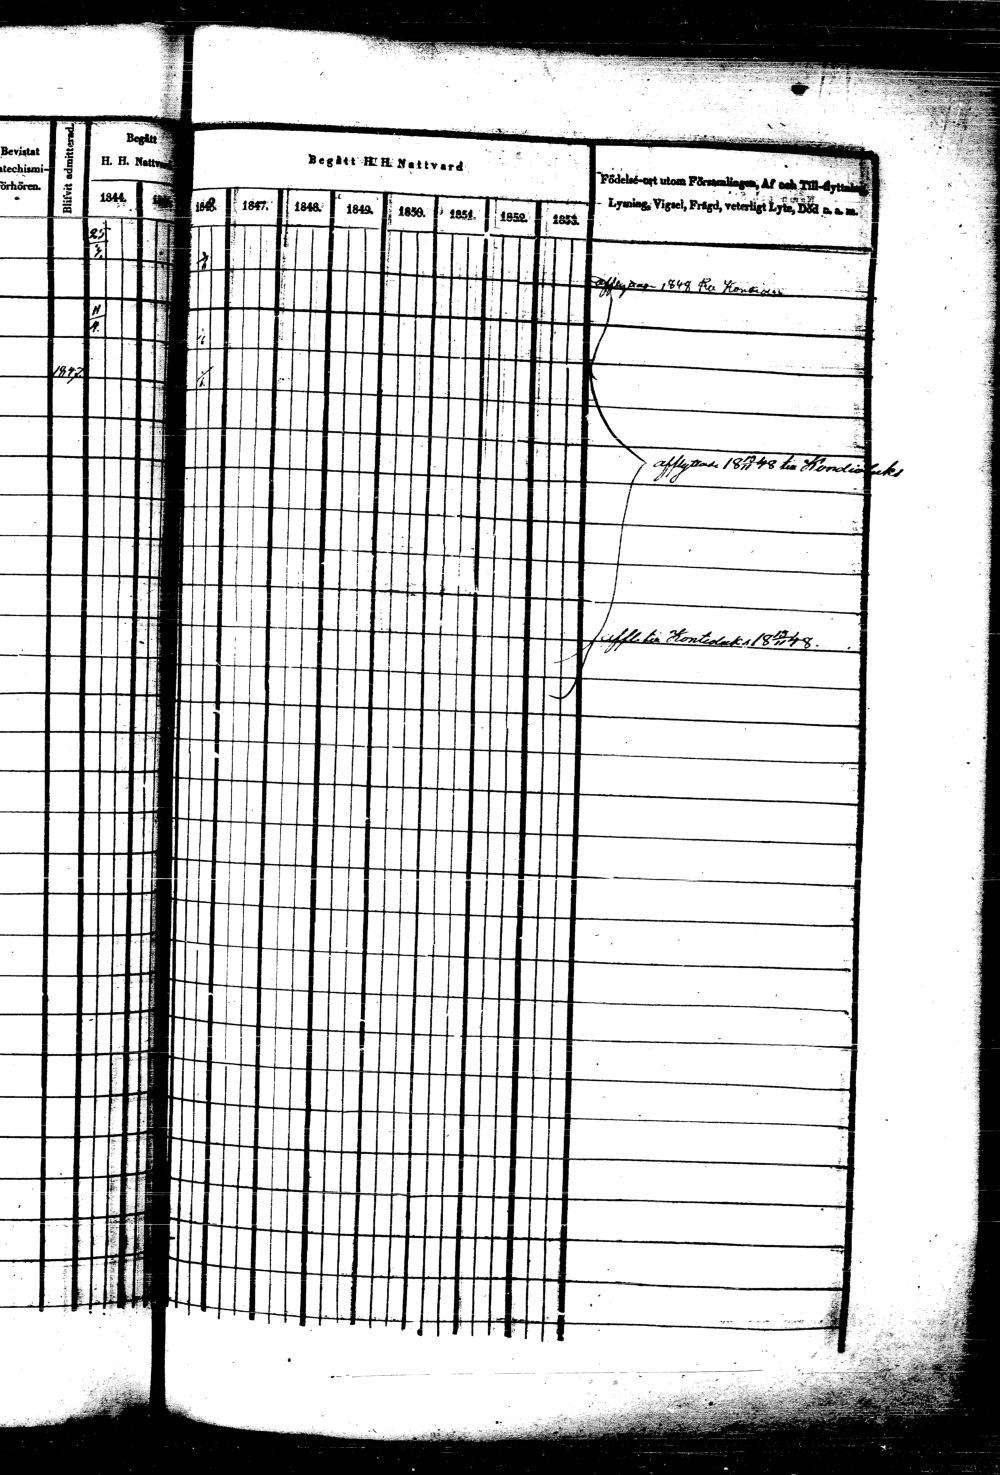 Bevistat
atechismi-
förhören.
Blifvit admitterad.
Begått
H. H. Nattvard
1844.
Begått H. H. Nattvard
1846. 1847. 1848. 1849. 1850. 1851. 1852. 1853.
Födelse-ort utom Församlingen, Af och Till-flyttning,
Lysning, Vigsel, Frägd, veterligt Lyte, Död n. a. m.
25
7.
afflyttar 1848
11
4.
1847
afflyttade 18 12/11 48 till Kondiolacks
affl. till Kontiolaks 18 12/11 48.